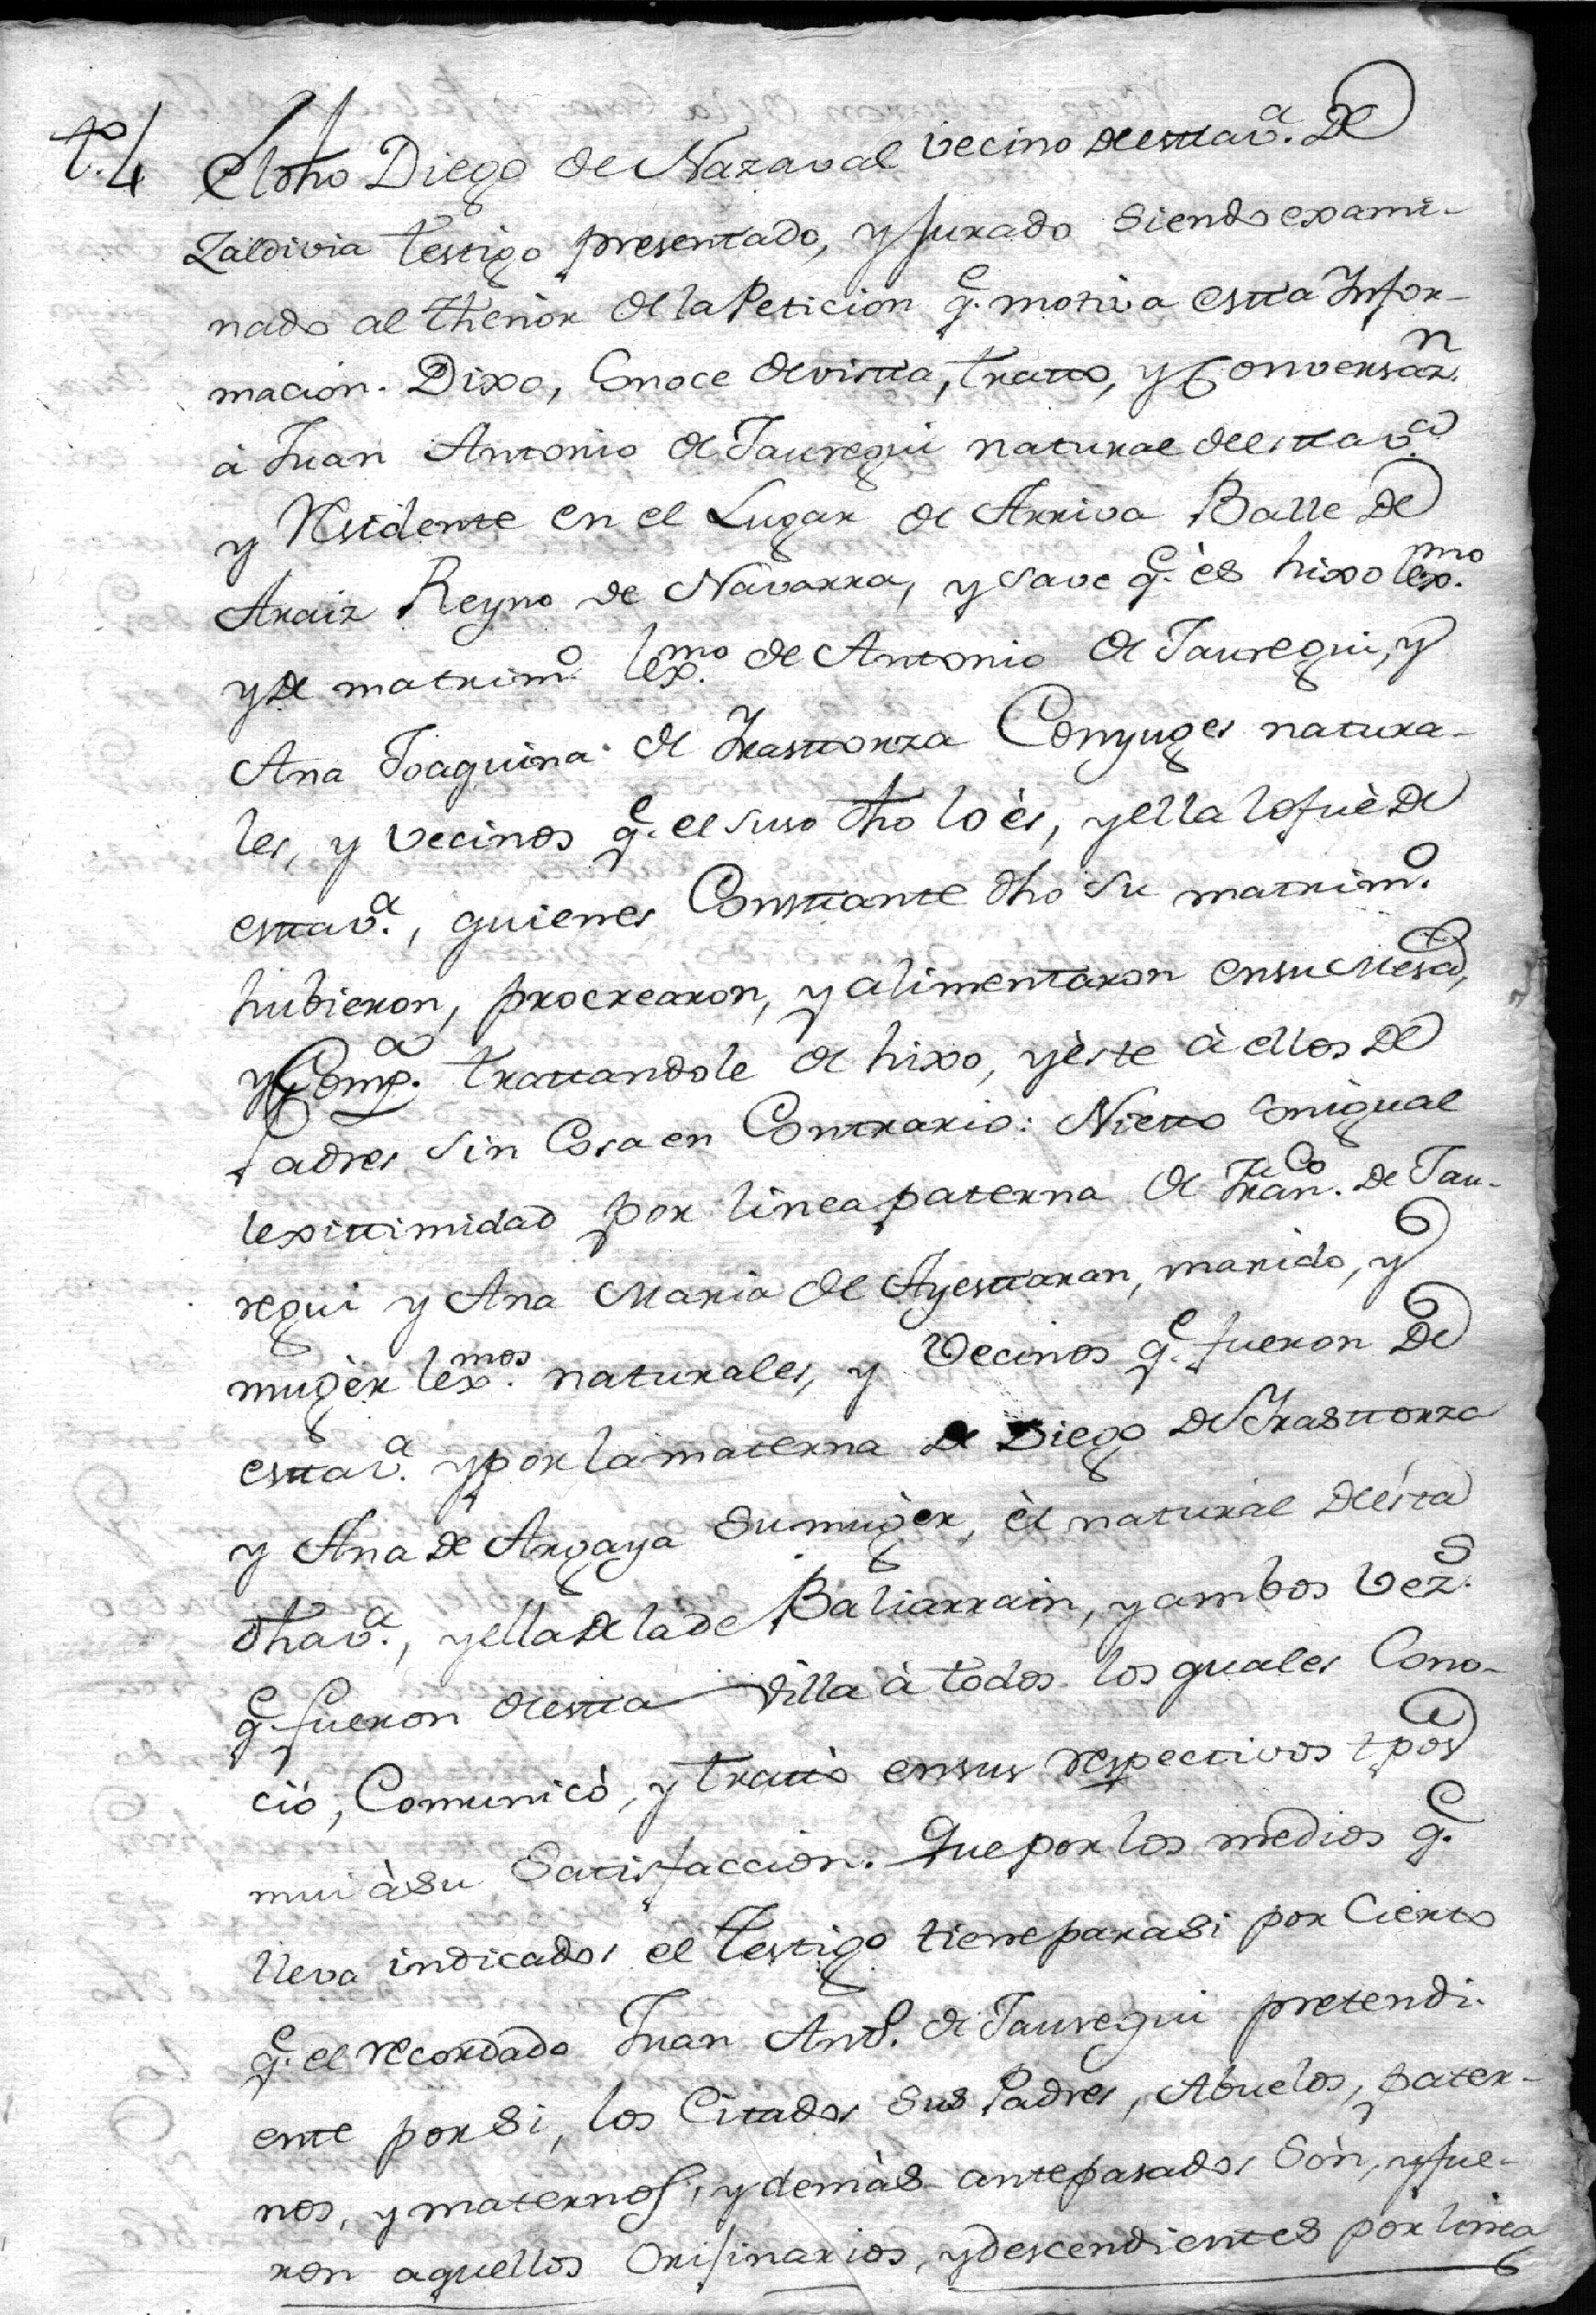 t.º 4
El dho Diego de Nazaval vecino de estta v.ª de
Zaldivia testigo presentado, y jurado siendo exami-
nado al thenor de la Peticion q.e motiva estta Infor-
macion. Dixo, Conoce de vistta, tratto, y Conversaz.n
à Juan Antonio de Jauregui natural de estta v.ª
y Residente en el Lugar de Arriva Balle de
Araiz Reyno de Navarra, y save q.e ès hixo lex.mo
y de matrim.º lex.mo de Antonio de Jauregui, y
Ana Joaquina de Irasttorza Conyuges natura-
les, y vecinos q.e el suso dho lo ès, y ella lo fuè de
estta v.ª, quienes Consttante dho su matrim.º
hubieron, procrearon, y alimentaron en su Mesa,
y Comp.ª trattandole de hixo, y èste à ellos de
Padres sin Cosa en Contrario: Nietto con igual
lexittimidad por linea paterna de Fran.co de Jau-
regui y Ana Maria de Ayesttaran, marido, y
mugèr lex.mos naturales, y Vecinos q.e fueron de
estta v.ª y por la materna de Diego de Irasttorza
y Ana de Argaya su mugèr, èl natural de ésta
dha v.ª, y ella de la de Baliarrain, y ambos vez.s
q.e fueron de estta villa à todos los quales Cono-
ciò, Comunicò, y trattò en sus respectivos tpos
mui à su Satisfaccion. Que por los medios q.e
lleva indicados el testigo tiene para si por Cierto
q.e el recordado Juan Ant.º de Jauregui pretendi-
ente por si, los Cittados sus Padres, Abuelos, pater-
nos, y maternos, y demàs antepasados son, y fue-
ron aquellos Orijinarios, y descendientes por linea